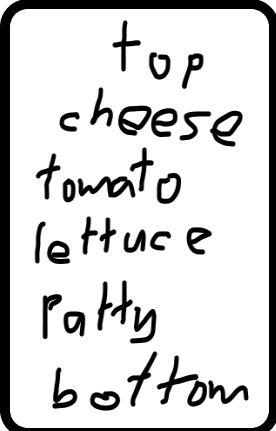 top
cheese
tomato
lettuce
patty
bottom